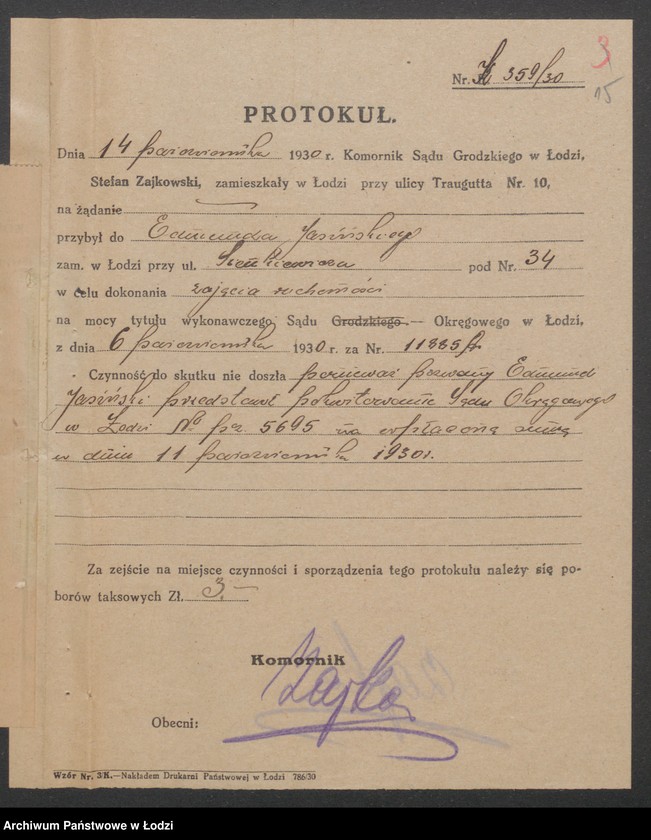 3
Nr. K 359/30
15
PROTOKUŁ.
Dnia 14 października 1930 r. Komornik Sądu Grodzkiego w Łodzi,
Stefan Zajkowski, zamieszkały w Łodzi przy ulicy Traugutta Nr. 10,
na żądanie
przybył do Edmunda Jasińskiego
zam. w Łodzi przy ul. Sienkiewicza pod Nr. 34
w celu dokonania zajęcia ruchomości
na mocy tytułu wykonawczego Sądu Grodzkiego — Okręgowego w Łodzi,
z dnia 6 października 1930 r. za Nr. 11885
Czynność do skutku nie doszła ponieważ pozwany Edmund
Jasiński przedstawił pokwitowanie Sądu Okręgowego
w Łodzi No 5695 na wpłaconą sumę
w dniu 11 października 1930 r.
Za zejście na miejsce czynności i sporządzenia tego protokułu należy się po-
borów taksowych Zł. 3.—
Komornik
Obecni:
Wzór Nr. 3/K.—Nakładem Drukarni Państwowej w Łodzi 786/30
Archiwum Państwowe w Łodzi